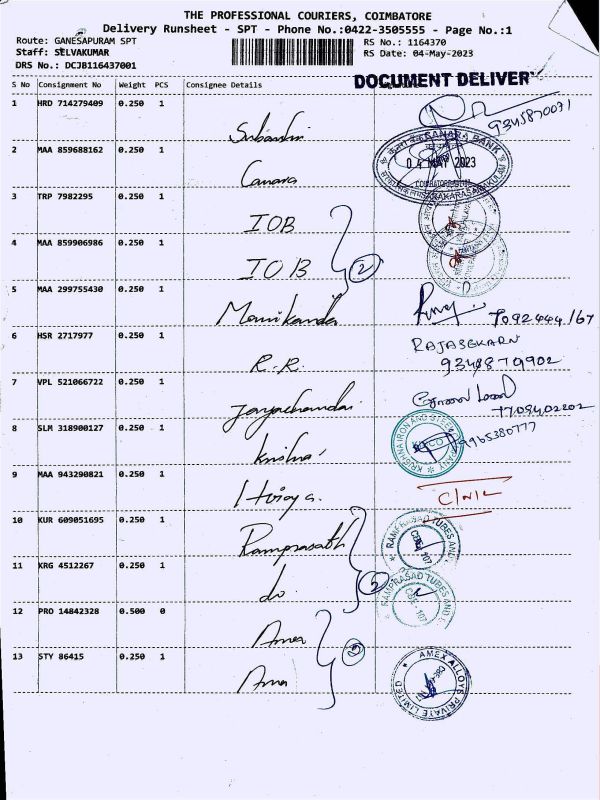 THE PROFESSIONAL COURIERS, COIMBATORE
Delivery Runsheet - SPT - Phone No.:0422-3505555 - Page No.:1
Route: GANESAPURAM SPT RS No.: 1164370
Staff: SELVAKUMAR RS Date: 04-May-2023
DRS No.: DCJB116437001 DOCUMENT DELIVER
S No Consignment No Weight PCS Consignee Details
1 HRD 714279409 0.250 1 9345870071
2 MAA 859688162 0.250 1 Canara CANARA BANK 04 MAY 2023
3 TRP 7982295 0.250 1 IOB
4 MAA 859906986 0.250 1 IOB 2
5 MAA 299755430 0.250 1 Manikanda 7092444167
6 HSR 2717977 0.250 1 R.R. RAJASEKARN
9348879902
7 VPL 521066722 0.250 1 7709402202
8 SLM 318900127 0.250 1 Krishna KRISHNA IRON AND STEEL COMPANY 9965380777
9 MAA 943290821 0.250 1
10 KUR 609051695 0.250 1 Ramprasath RAMPRASAD TUBES AND
11 KRG 4512267 0.250 1 do RAMPRASAD TUBES AND
12 PRO 14842328 0.500 0 Amex
13 STY 86415 0.250 1 Amex AMEX ALLOYS PRIVATE LIMITED